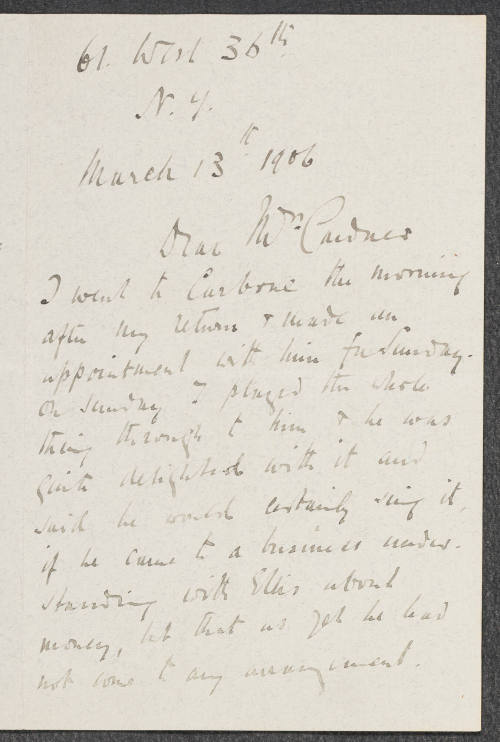 61. West 36th
N. Y.
March 13th 1906
Dear Mrs Gardner
I went to Carbone the morning
after my return & made an
appointment with him for Sunday.
On Sunday I played the whole
thing through to him & he was
quite delighted with it and
said he would certainly sing it,
if he came to a business under-
standing with Ellis about
money, but that as yet he had
not come to any arrangement.